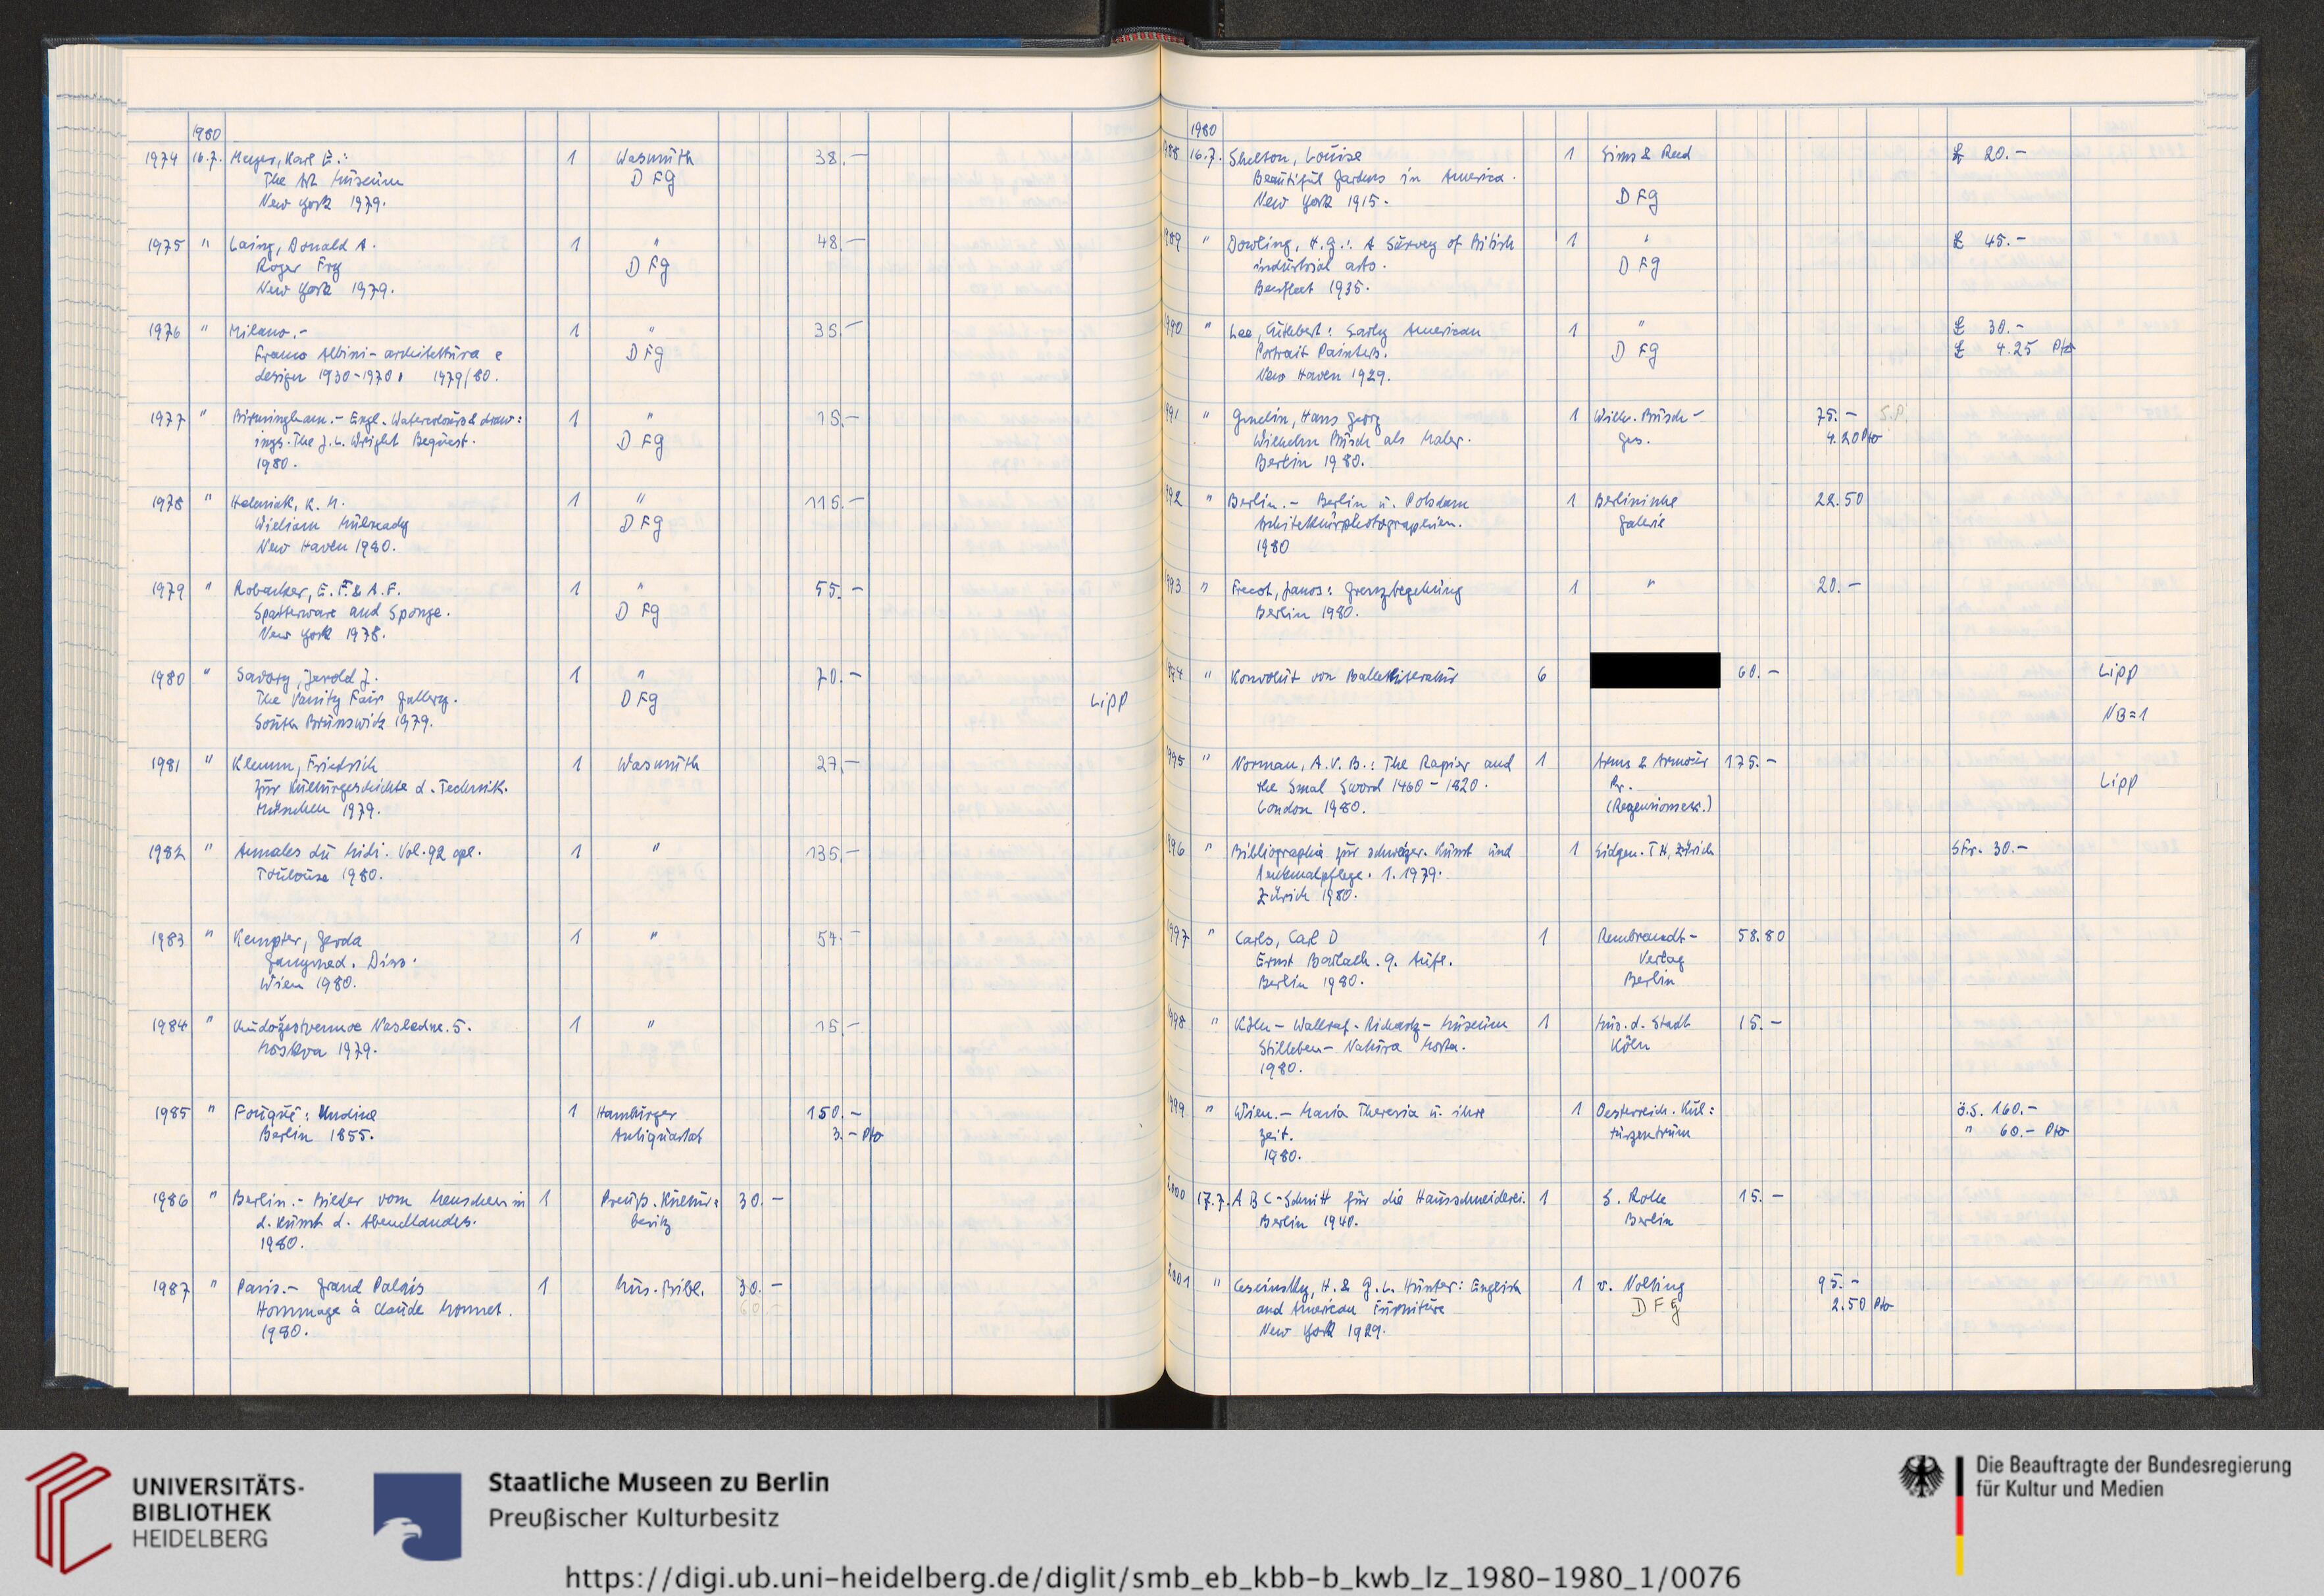 1980
1974 16.7. Meyer, Karl E.: 1 Wasmuth 38.—
The Art Museum DFG
New York 1979.
1975 " Laing, Donald A. 1 " 48.—
Roger Fry DFG
New York 1979.
1976 " Milano.- 1 " 35.—
Franco Albini - architettura e DFG
design 1930-1970. 1979/80.
1977 " Birmingham.- Engl. Watercolours & draw= 1 " 15.—
ings. The J. L. Wright Bequest. DFG
1980.
1978 " K. H. 1 " 115.—
William Mulready DFG
New Haven 1980.
1979 " Robacker, E. F. & A. F. 1 " 55.—
Spatterware and Sponge. DFG
New York 1978.
1980 " Savory, Jerold J. 1 " 70.—
The Vanity Fair Gallery. DFG Lipp
South Brunswick 1979.
1981 " Klemm, Friedrich 1 Wasmuth 27.—
Zur Kulturgeschichte d. Technik.
München 1979.
1982 " Annales du Midi. Vol. 92 cpl. 1 " 135.—
Toulouse 1980.
1983 " Kempter, Gerda 1 " 54.—
Ganymed. Diss.
Wien 1980.
1984 " 1 " 15.—
Moskva 1979.
1985 " Fouqué: Undine 1 Hamburger 150.—
Berlin 1855. Antiquariat 3.— Pto
1986 " Berlin.- Bilder vom Menschen in 1 Preuß. Kultur= 30.—
d. Kunst d. Abendlandes. besitz
1980.
1987 " Paris.- Grand Palais 1 Mus. Bibl. 30.—
Hommage à Claude Monnet.
1980.
1980
988 16.7. Shelton, Louise 1 Sims & Reed £ 20.—
Beautiful Gardens in America.
New York 1915. DFG
989 " Dowling, H. G.: A Survey of British 1 " £ 45.—
industrial arts. DFG
Benfleet 1935.
990 " Lee, Cuthbert: Early American 1 " £ 30.—
Portrait Painters. DFG £ 4.25 Pto
New Haven 1929.
991 " Gmelin, Hans Georg 1 Wilh.-Busch- 75.— S.P.
Wilhelm Busch als Maler. Ges. 4.20 Pto
Berlin 1980.
992 " Berlin.- Berlin u. Potsdam 1 Berlinische 22.50
Architekturphotographien. Galerie
1980
993 " Frecot, Janos: Grenzbegehung 1 " 20.—
Berlin 1980.
994 " Konvolut von Ballettliteratur 6 60.— Lipp
NB=1
995 " Norman, A. V. B.: The Rapier and 1 Arms & Armour 175.—
the Smal Sword 1460-1820. Pr. Lipp
London 1980. (Rezensionsex.)
996 " Bibliographie zur schweizer. Kunst und 1 Eidgen. TH, Zürich SFr. 30.—
Denkmalpflege. 1.1979.
Zürich 1980.
1997 " Carls, Carl D 1 Rembrandt- 58.80
Ernst Barlach. 9. Aufl. Verlag
Berlin 1980. Berlin
998 " Köln - Wallraf-Richartz-Museum 1 Mus. d. Stadt 15.—
Stilleben - Natura Morta. Köln
1980.
999 " Wien.- Maria Theresia u. ihre 1 Oesterreich. Kul= ö.S. 160.—
Zeit. turzentrum " 60.— Pto
1980.
2000 17.7. ABC-Schnitt für die Hausschneiderei. 1 S. Rolle 15.—
Berlin 1940. Berlin
2001 " Cescinsky, H. & G. L. Hunter: English 1 v. Nolting 95.—
and American furniture DFG 2.50 Pto
New York 1929.
UNIVERSITÄTS-
BIBLIOTHEK
HEIDELBERG
Staatliche Museen zu Berlin
Preußischer Kulturbesitz
Die Beauftragte der Bundesregierung
für Kultur und Medien
https://digi.ub.uni-heidelberg.de/diglit/smb_eb_kbb-b_kwb_lz_1980-1980_1/0076